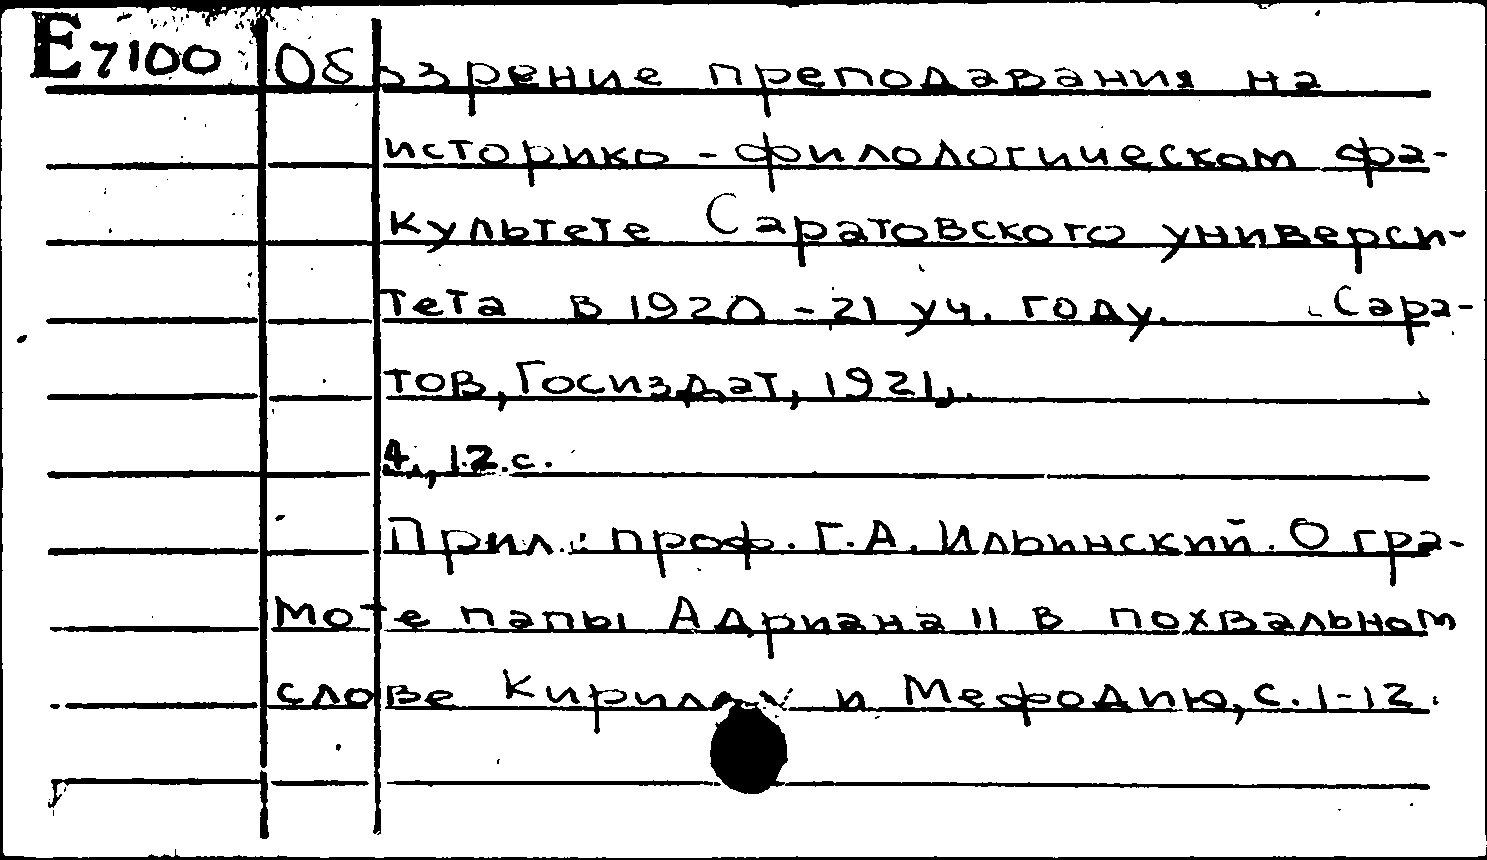 E 7100 Обозрение преподавания на
историко-филологическом фа-
культете Саратовского универси-
тета в 1920-21 уч. году. Сара-
тов, Госиздат, 1921.
4, 12 с.
Прил.: проф. Г. А. Ильинский. О гра-
моте папы Адриана II в похвальном
слове Кириллу и Мефодию, с. 1-12.